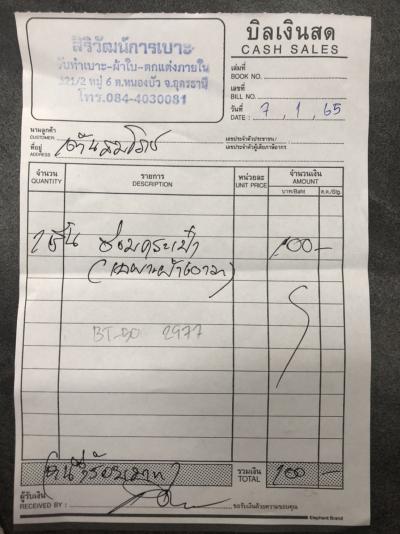 สิริวัฒน์การเบาะ
รับทำเบาะ-ผ้าใบ-ตกแต่งภายใน
321/2 หมู่ 6 ต.หนองบัว จ.อุดรธานี
โทร.084-4030081
บิลเงินสด
CASH SALES
เล่มที่
BOOK NO.
เลขที่
BILL NO.
วันที่
DATE : 7, 1, 65
นามลูกค้า
CUSTOMER
เลขประจำตัวประชาชน /
เลขประจำตัวผู้เสียภาษีอากร
ที่อยู่
ADDRESS
จำนวน รายการ หน่วยละ จำนวนเงิน
QUANTITY DESCRIPTION UNIT PRICE AMOUNT
บาท/Baht ส.ต./Stg.
ซ่อมกระเป๋า 100 -
BT-50 2977
รวมเงิน
TOTAL 100 -
ผู้รับเงิน
RECEIVED BY : ขอรับเงินด้วยความขอบคุณ
Elephant Brand